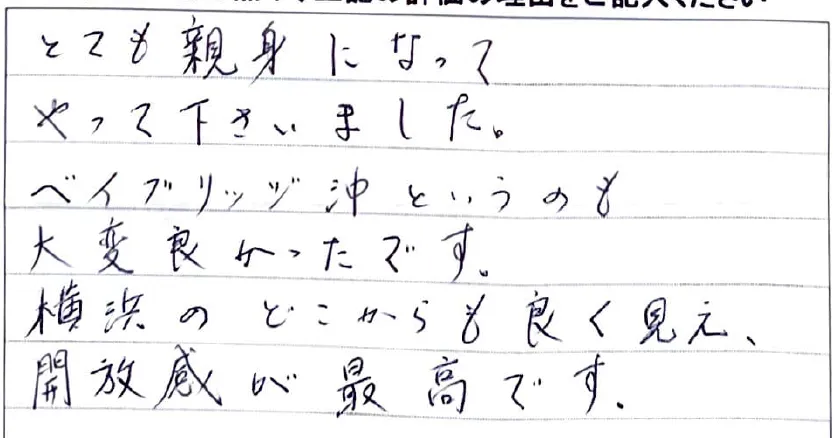 の理由をご記入ください
とても親身になって
やって下さいました。
ベイブリッジ沖というのも
大変良かったです。
横浜のどこからも良く見え、
開放感が最高です。